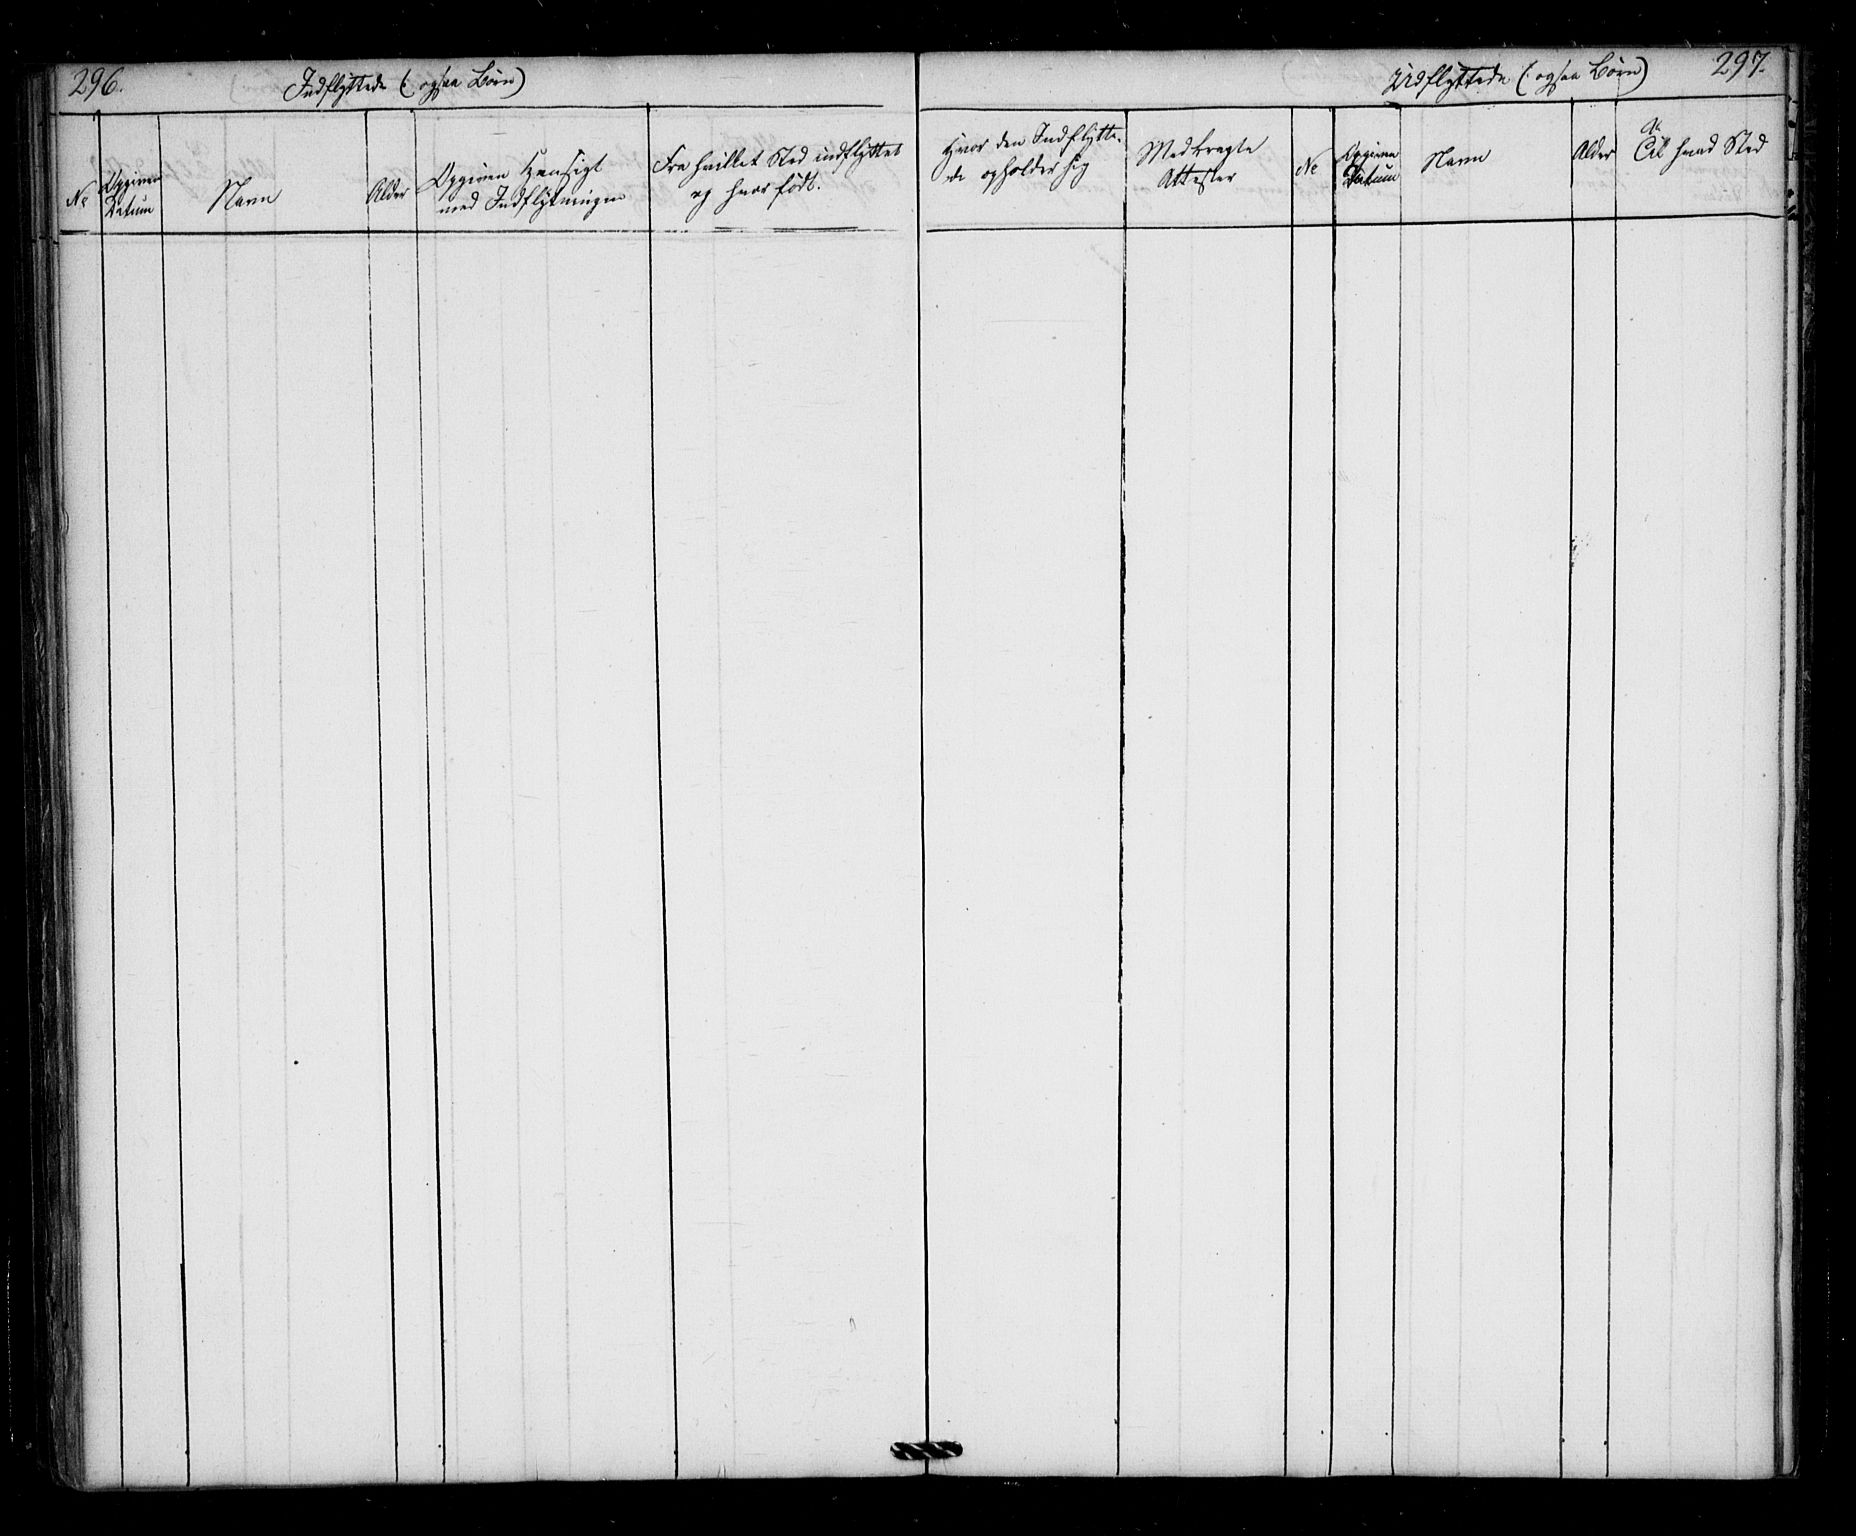 296.
Indflyttede (: ogsaa Børn)
No
Opgiven
Datum
Navn
Alder
Opgiven Hensigt
med Indflytningen
Fra hvilket Sted indflyttet
og hvor født.
297.
Udflyttede (: ogsaa Børn)
Hvor den Indflytte-
de opholder sig
Medbragte
Attester
No
Opgiven
Datum
Navn
Alder
Til hvad Sted